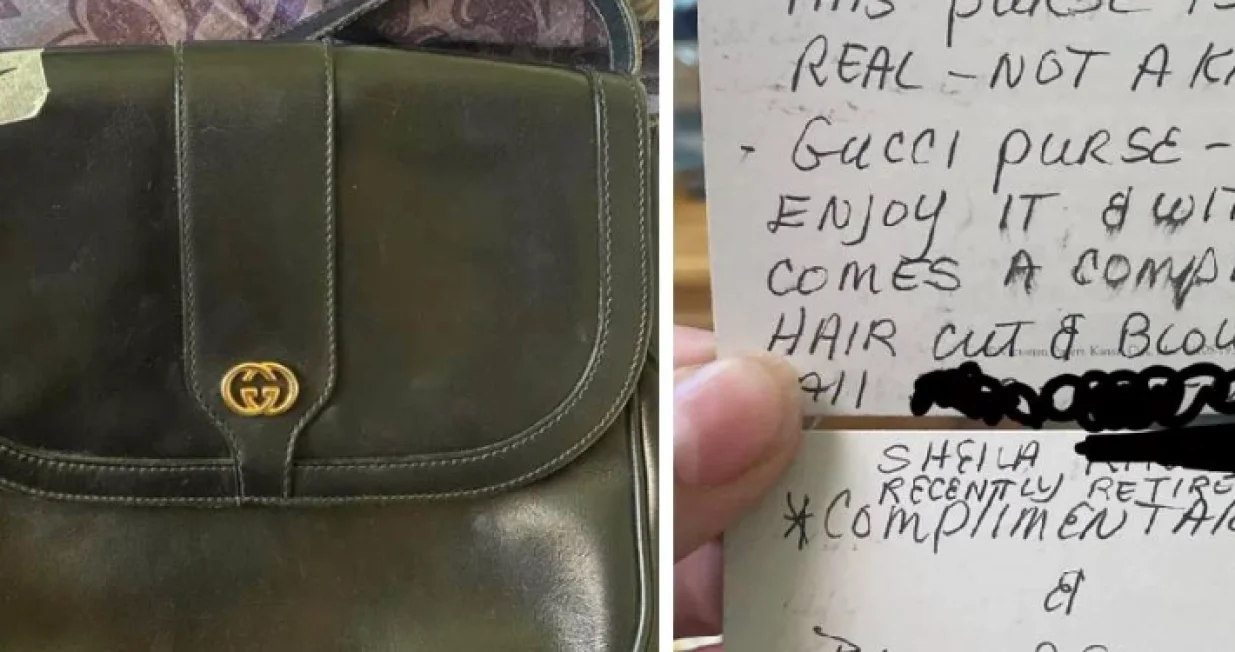 THIS PURSE IS
REAL - NOT A K
- GUCCI PURSE -
ENJOY IT & WIT
COMES A COMP
HAIR CUT & BLOW
All
SHEILA
RECENTLY RETIRE
*COMPlIMENTAR
&